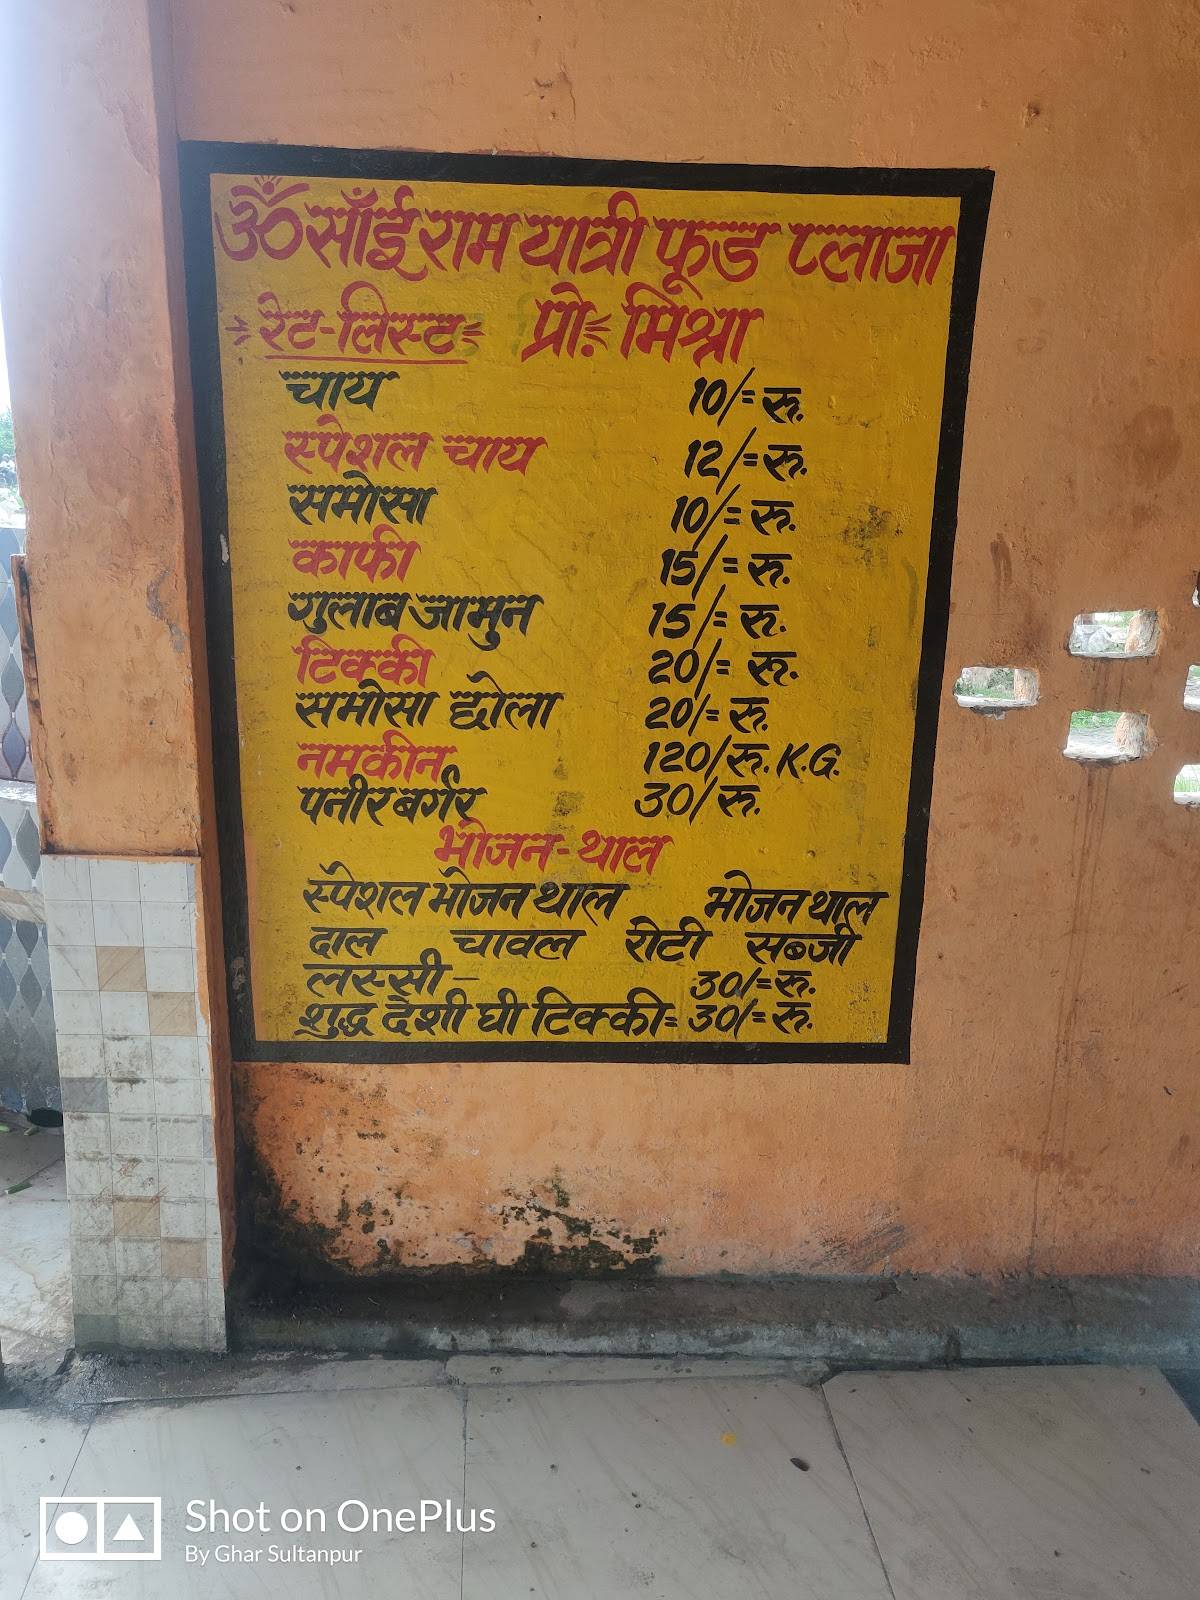 ॐ साँई राम यात्री फूड प्लाजा
रेट-लिस्ट प्रो. मिश्रा
चाय 10/= रु.
स्पेशल चाय 12/= रु.
समोसा 10/= रु.
काफी 15/= रु.
गुलाब जामुन 15/= रु.
टिक्की 20/= रु.
समोसा छोला 20/= रु.
नमकीन 120/रु. K.G.
पनीर बर्गर 30/रु.
भोजन-थाल
स्पेशल भोजन थाल भोजन थाल
दाल चावल रोटी सब्जी
लस्सी – 30/= रु.
शुद्ध देशी घी टिक्की = 30/= रु.
Shot on OnePlus
By Ghar Sultanpur